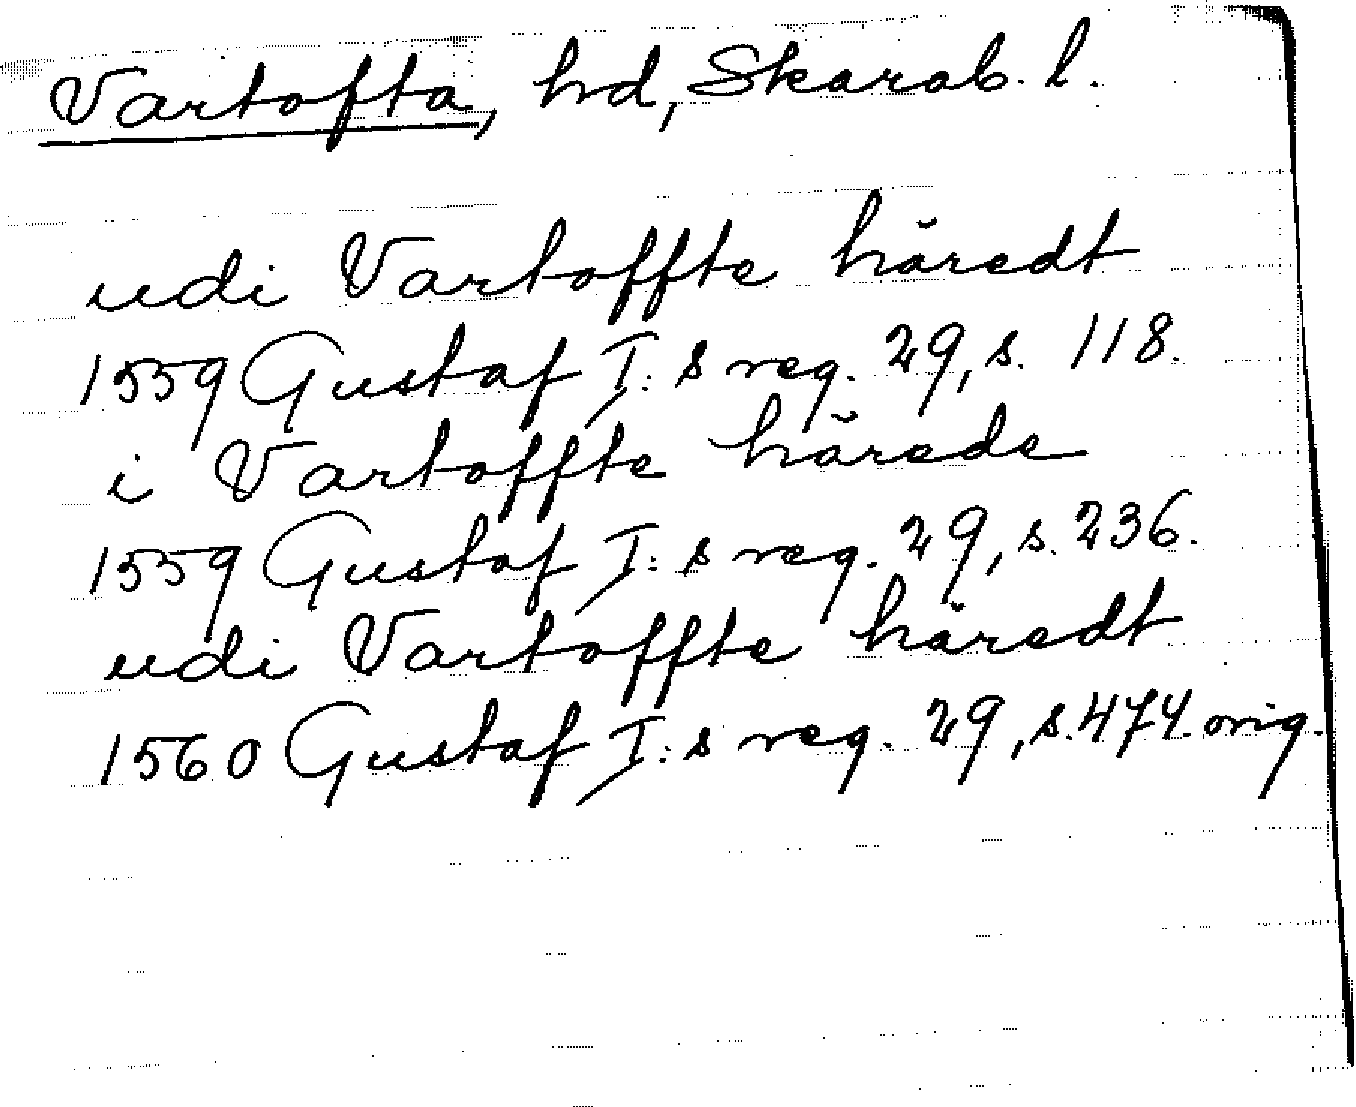 Vartofta, hd, Skarab. l.
udi Vartoffte häredt
1559 Gustaf I:s reg. 29, s. 118.
i Vartoffte härede
1559 Gustaf I:s reg. 29, s. 236.
udi Vartoffte häredt
1560 Gustaf I:s reg. 29, s. 474. orig.